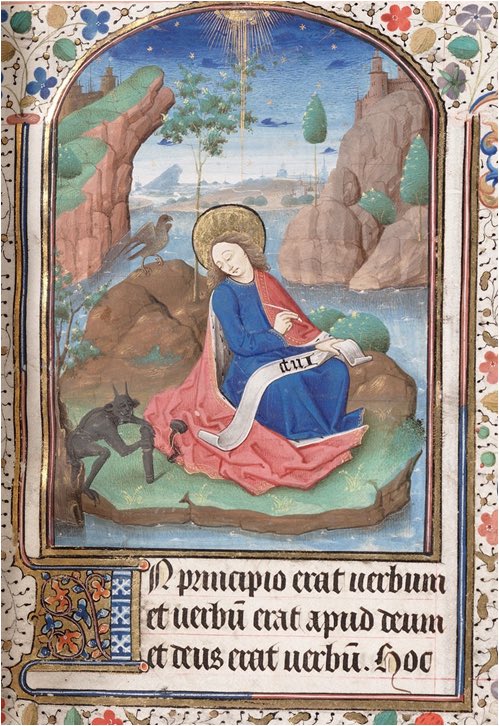 Inp
IN principio erat uerbum
et uerbū erat apud deum
et deus erat uerbū. Hoc